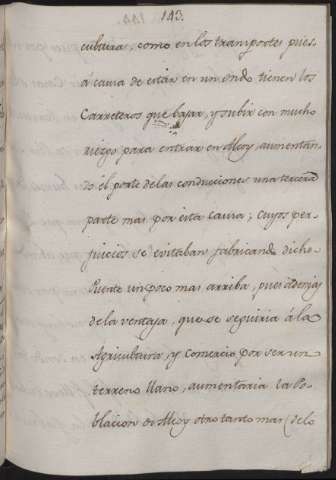 143.
cultura, como en los transportes pues
á causa de estár en un ondo tienen los
Carreteros que bajar, y subir con mucho
riezgo para entrar en Alcoy, aumentan-
do el porte de las conduciones una tercera
parte mas por esta causa; cuyos per-
juicios se evitaban fabricando dicho
Puente un poco mas arriba, pues ademas
de la ventaja, que se seguiria á la
Agricultura, y Comercio por ser un
terreno llano, aumentaria la Po-
blacion de Alcoy otro tanto mas (de lo